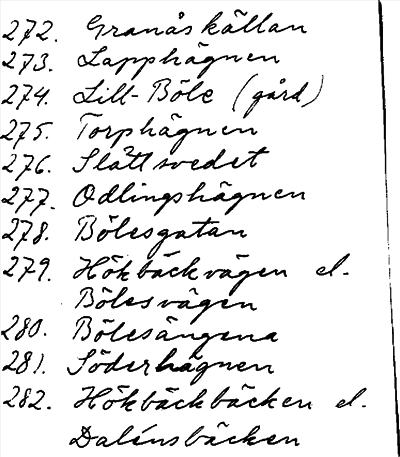 272. Granåskällan
273. Lapphägnen
274. Lill-Böle (gård)
275. Torphägnen
276. Slåttsvedet
277. Odlingshägnen
278. Bölesgatan
279. Hökbäckvägen el.
Bölesvägen
280. Bölesängena
281. Söderhägnen
282. Hökbäckbäcken el.
Dalénsbäcken